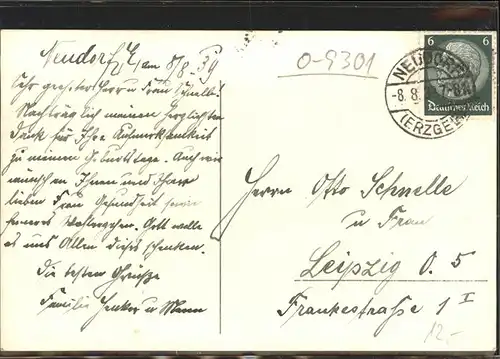 Neudorf/E. am 8/8. 39
Sehr geehrter Herr u Frau Schnelle!
Nachträglich meinen herzlichsten
Dank für Ihre Aufmerksamkeit
zu meinem Geburtstage. Auch wir
wünschen Ihnen und Ihrer
lieben Frau Gesundheit
ferneres Wohlergehen. Gott wolle
es uns Allen dieses schenken.
Die besten Grüße
Familie u Mann
0-9301
NEUDORF
-8.8.
(ERZGEB
6 6
Deutsches Reich
Herrn Otto Schnelle
u Frau
Leipzig O. 5
Frankestraße 1 I
12,-